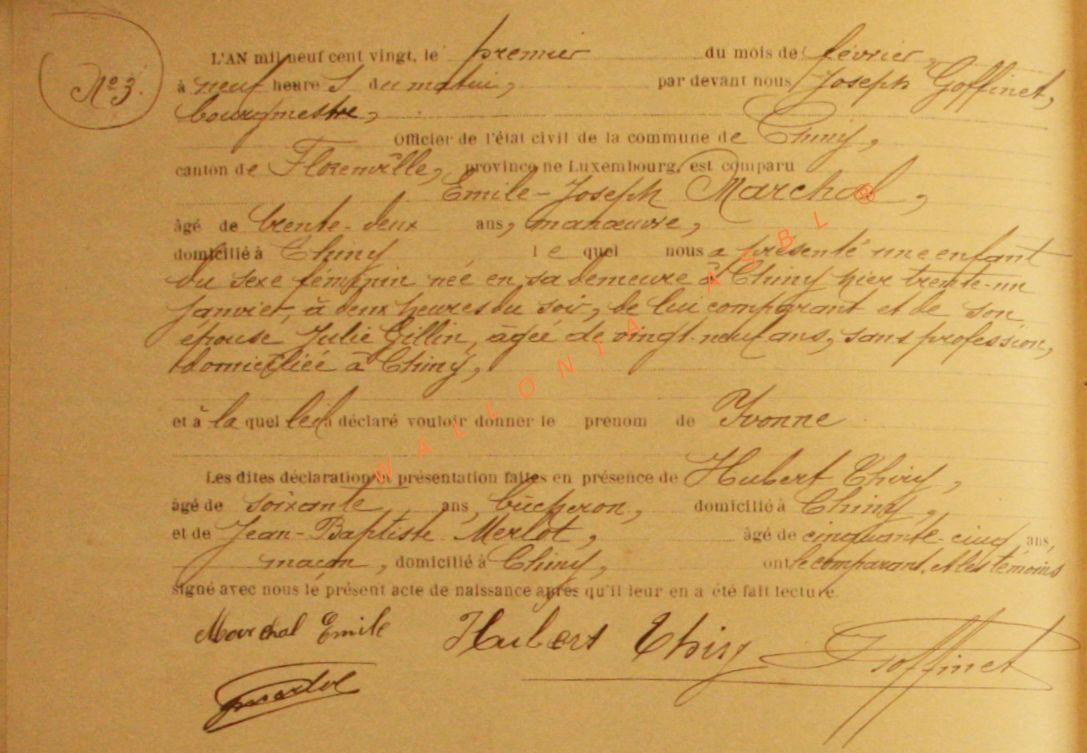 N° 3.
L'AN mil neuf cent vingt, le premier du mois de février,
à neuf heure s du matin, par devant nous Joseph Goffinet,
bourgmestre,
Officier de l'état civil de la commune de Chiny,
canton de Florenville, province ne Luxembourg, est comparu
Emile-Joseph Marchal,
âgé de trente-deux ans, manœuvre,
domicilié à Chiny le quel nous a présenté une enfant
du sexe féminin née en sa demeure à Chiny hier trente-un
janvier, à deux heures du soir, de lui comparant et de son
épouse Julie Gillin, âgée de vingt-neuf ans, sans profession,
domiciliée à Chiny,
et à la quel le il a déclaré vouloir donner le prenom de Yvonne
Les dites déclaration et présentation faites en présence de Hubert Thiry,
âgé de soixante ans, bûcheron, domicilié à Chiny,
et de Jean-Baptiste Merlot, âgé de cinquante-cinq ans,
maçon, domicilié à Chiny, ont le comparant et les témoins
signé avec nous le présent acte de naissance après qu'il leur en a été fait lecture.
Marchal Emile Hubert Thiry Goffinet
WALLONIA ASBL ®